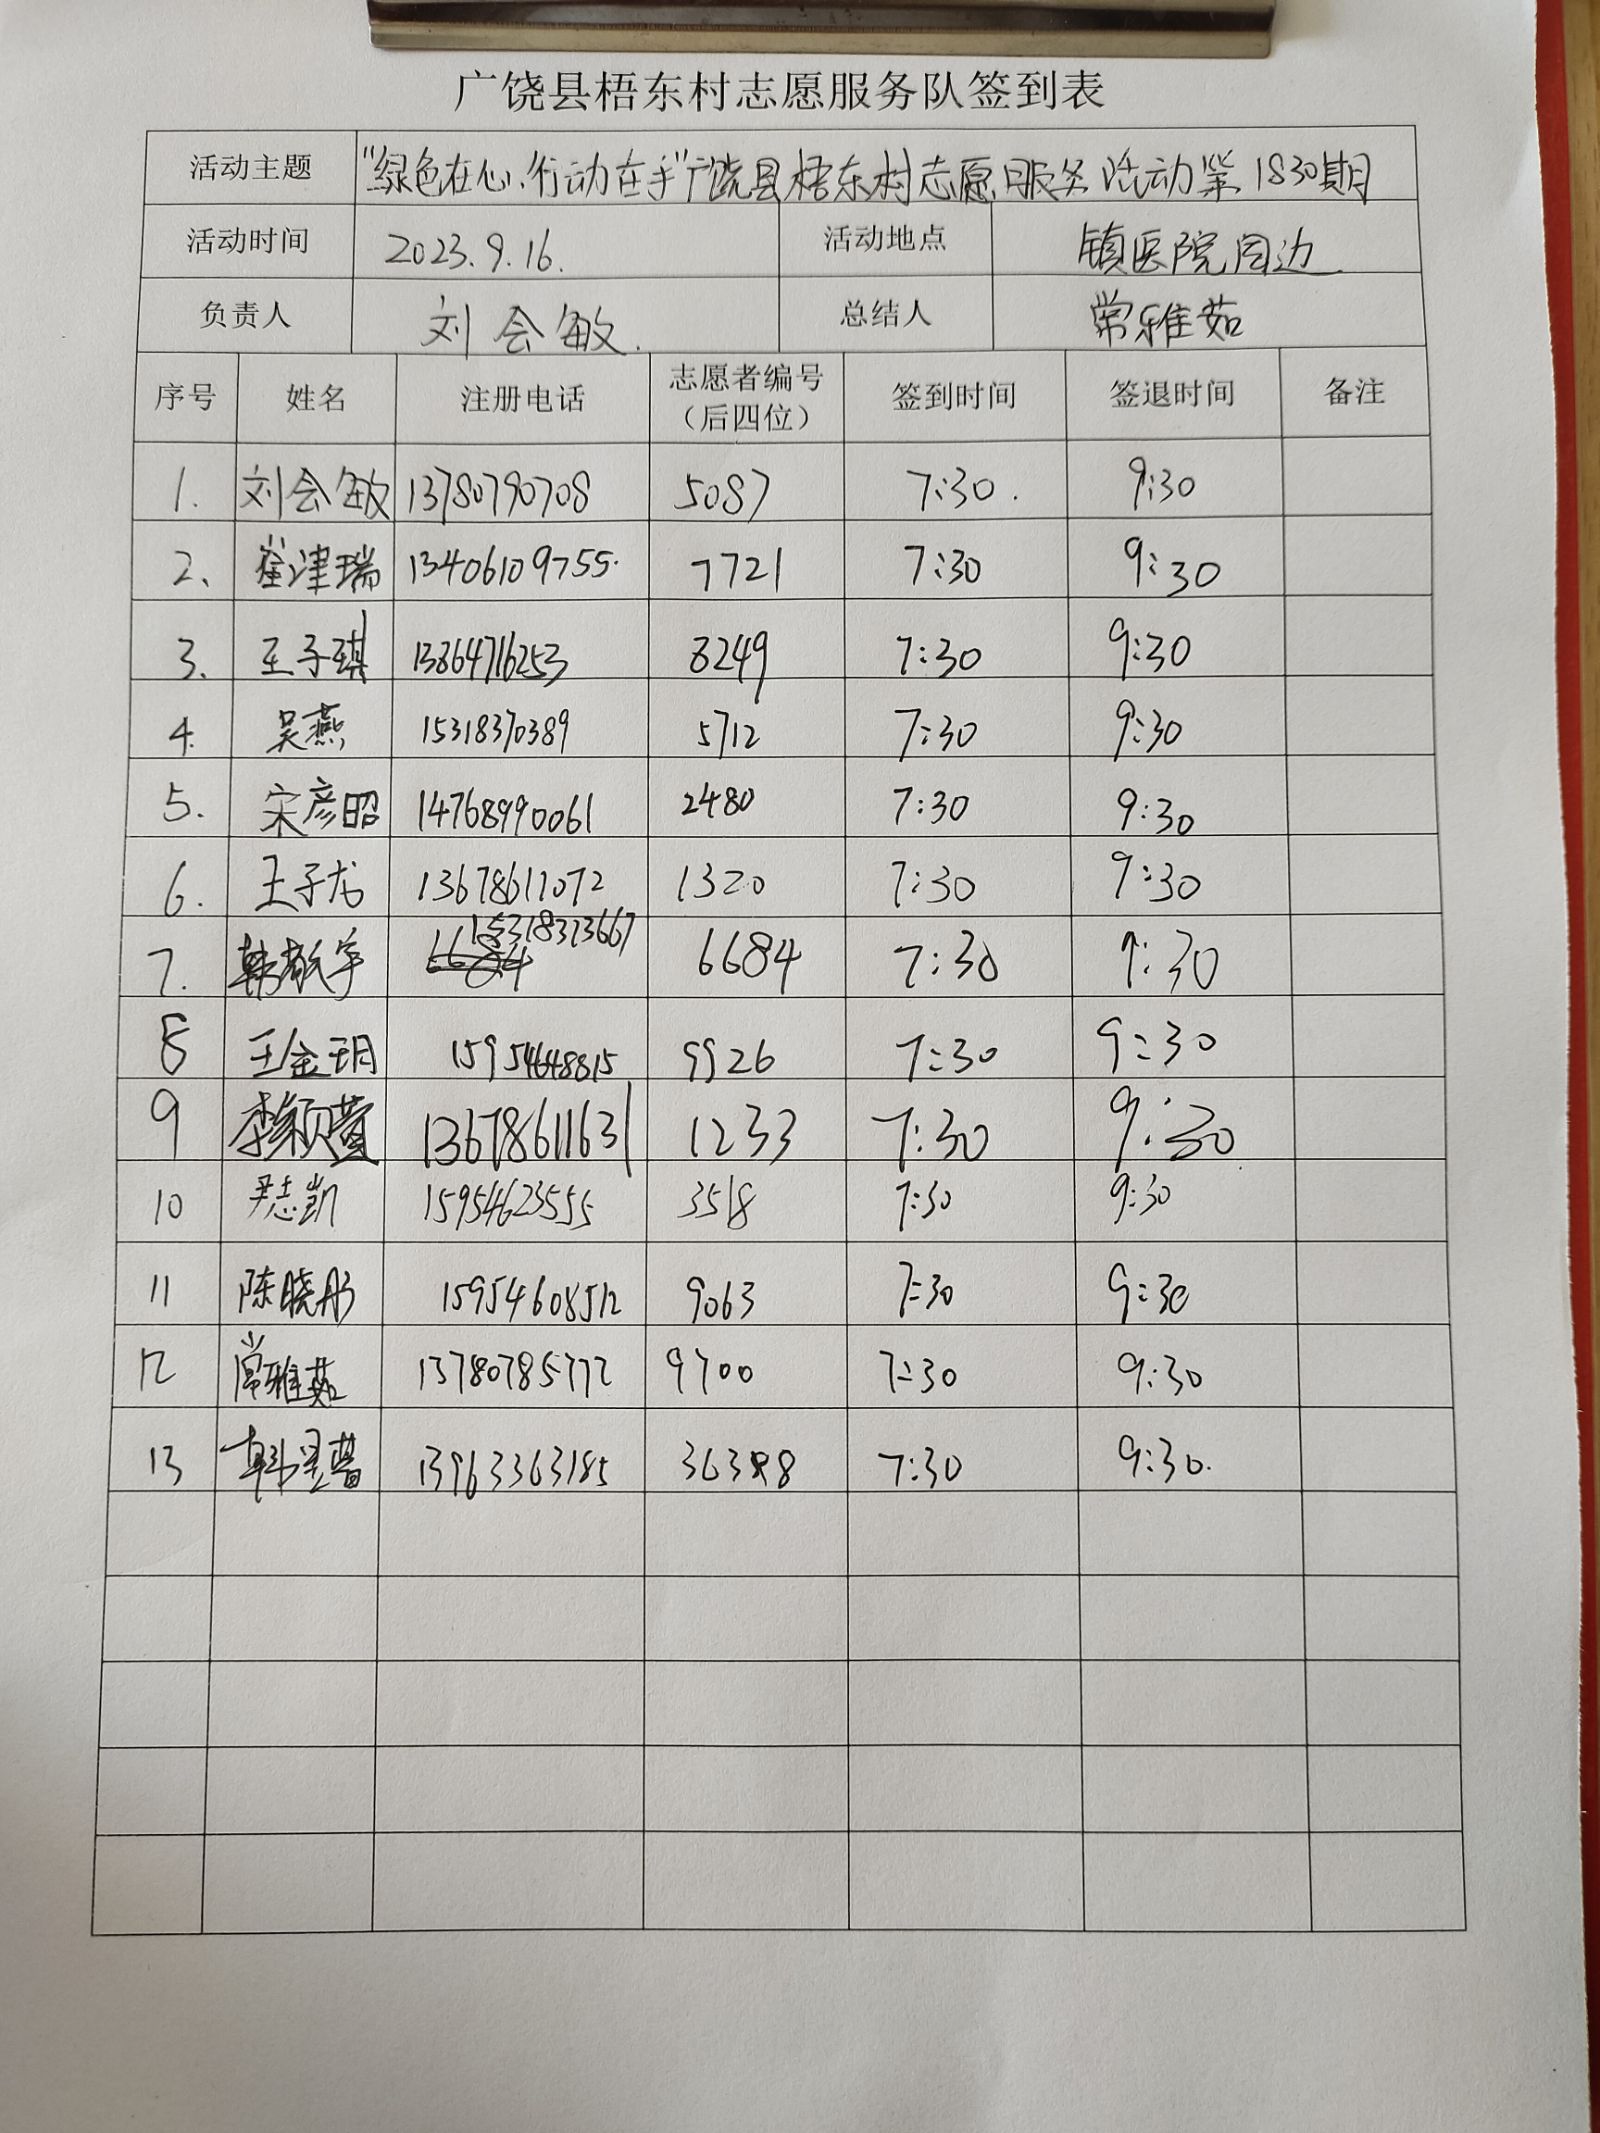 广饶县梧东村志愿服务队签到表
活动主题 "绿色在心、行动在手"广饶县梧东村志愿服务活动第1830期
活动时间 2023.9.16. 活动地点 镇医院周边
负责人 刘会敏. 总结人 常雅茹
序号 姓名 注册电话 志愿者编号（后四位） 签到时间 签退时间 备注
1. 刘会敏 13780790708 5087 7:30. 9:30
2、 崔津瑞 13406109755. 7721 7:30 9:30
3. 王子琪 13864716253 8249 7:30 9:30
4. 吴燕 15318370389 5712 7:30 9:30
5. 宋彦昭 14768990061 2480 7:30 9:30
6. 王子龙 13678611072 1320 7:30 9:30
7. 韩敬宇 15318313667 6684 7:30 9:30
8 王金玥 15954648815 9926 7:30 9:30
9 李颖萱 13678611631 1233 7:30 9:30
10 尹志凯 15954623555 3518 7:30 9:30
11 陈晓彤 15954608512 9063 7:30 9:30
12 常雅茹 13780785772 9700 7:30 9:30
13 韩 13963363185 7:30 9:30.